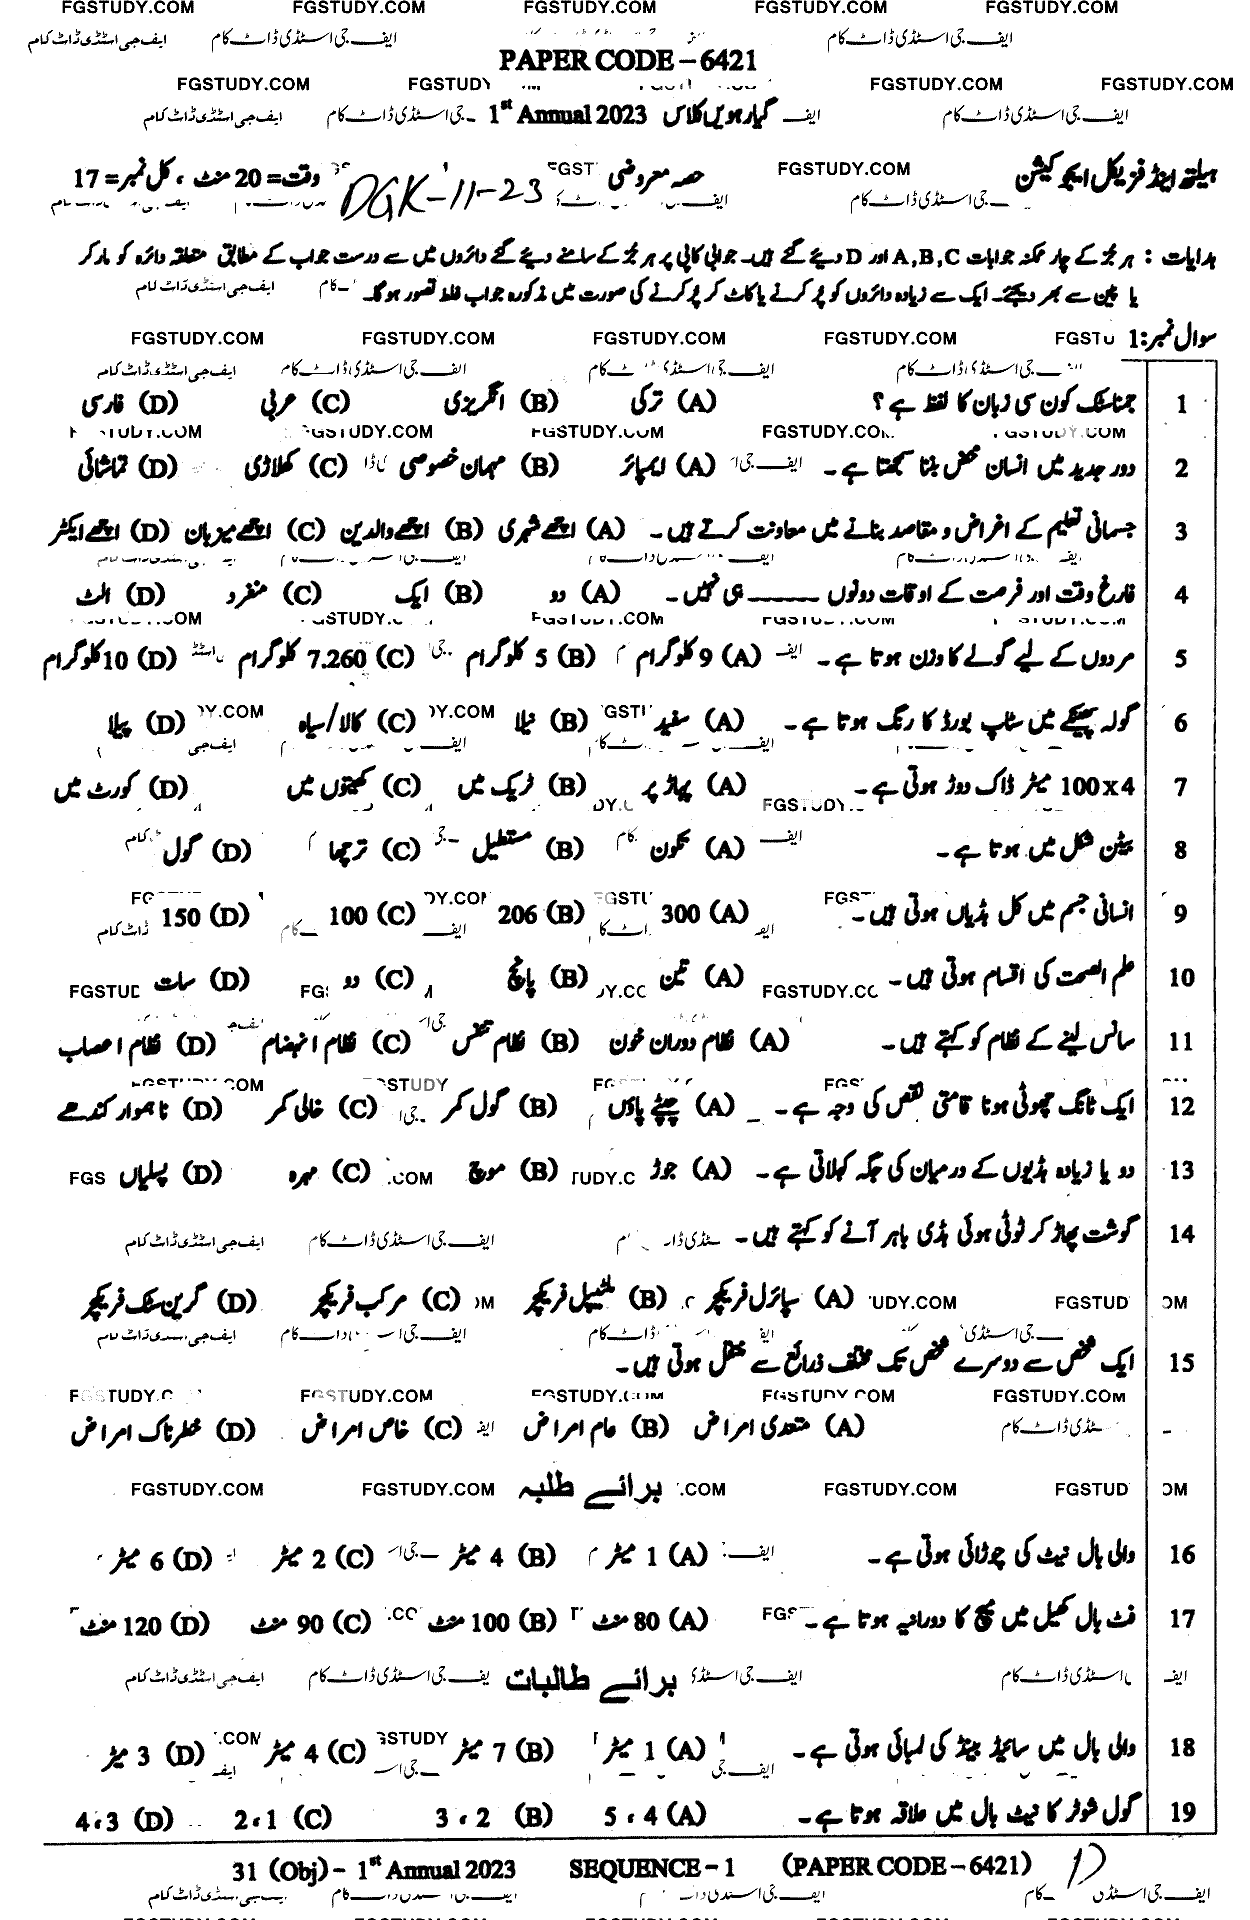 PAPER CODE – 6421
گیارہویں کلاس 1st Annual 2023
ہیلتھ اینڈ فزیکل ایجوکیشن حصہ معروضی DGK-11-23 وقت= 20 منٹ ، کل نمبر= 17
ہدایات : ہر جُز کے چار ممکنہ جوابات A,B,C اور D دیئے گئے ہیں۔ جوابی کاپی پر ہر جُز کے سامنے دیئے گئے دائروں میں سے درست جواب کے مطابق متعلقہ دائرہ کو مارکر
یا پین سے بھر دیجئے۔ ایک سے زیادہ دائروں کو پُر کرنے یا کاٹ کر پُر کرنے کی صورت میں مذکورہ جواب غلط تصور ہوگا۔
سوال نمبر:1
1 جمناسٹک کون سی زبان کا لفظ ہے ؟ (A) ترکی (B) انگریزی (C) عربی (D) فارسی
2 دور جدید میں انسان محض بننا سمجھتا ہے۔ (A) ایمپائر (B) مہمان خصوصی (C) کھلاڑی (D) تماشائی
3 جسمانی تعلیم کے اغراض و مقاصد بنانے میں معاونت کرتے ہیں۔ (A) اچھے شہری (B) اچھے والدین (C) اچھے میزبان (D) اچھے ایکٹر
4 فارغ وقت اور فرصت کے اوقات دونوں ـــــــ ہی نہیں۔ (A) دو (B) ایک (C) منفرد (D) الٹ
5 مردوں کے لیے گولے کا وزن ہوتا ہے۔ (A) 9 کلوگرام (B) 5 کلوگرام (C) 7.260 کلوگرام (D) 10 کلوگرام
6 گولہ پھینکنے میں سٹاپ بورڈ کا رنگ ہوتا ہے۔ (A) سفید (B) نیلا (C) کالا/سیاہ (D) پیلا
7 100x4 میٹر ڈاک دوڑ ہوتی ہے۔ (A) پہاڑ پر (B) ٹریک میں (C) کھیتوں میں (D) کورٹ میں
8 بیٹن شکل میں ہوتا ہے۔ (A) تکون (B) مستطیل (C) ترچھا (D) گول
9 انسانی جسم میں کل ہڈیاں ہوتی ہیں۔ (A) 300 (B) 206 (C) 100 (D) 150
10 علم الصحت کی اقسام ہوتی ہیں۔ (A) تین (B) پانچ (C) دو (D) سات
11 سانس لینے کے نظام کو کہتے ہیں۔ (A) نظام دوران خون (B) نظام تنفس (C) نظام انہضام (D) نظام اعصاب
12 ایک ٹانگ چھوٹی ہونا قامتی نقص کی وجہ ہے۔ (A) چپٹے پاؤں (B) گول کمر (C) خالی کمر (D) ناہموار کندھے
13 دو یا زیادہ ہڈیوں کے درمیان کی جگہ کہلاتی ہے۔ (A) جوڑ (B) موچ (C) مہرہ (D) پسلیاں
14 گوشت پھاڑ کر ٹوٹی ہوئی ہڈی باہر آنے کو کہتے ہیں۔
(A) سپائرل فریکچر (B) ملٹیپل فریکچر (C) مرکب فریکچر (D) گرین سٹک فریکچر
15 ایک شخص سے دوسرے شخص تک مختلف ذرائع سے منتقل ہوتی ہیں۔
(A) متعدی امراض (B) عام امراض (C) خاص امراض (D) خطرناک امراض
برائے طلبہ
16 والی بال نیٹ کی چوڑائی ہوتی ہے۔ (A) 1 میٹر (B) 4 میٹر (C) 2 میٹر (D) 6 میٹر
17 فٹ بال کھیل میں میچ کا دورانیہ ہوتا ہے۔ (A) 80 منٹ (B) 100 منٹ (C) 90 منٹ (D) 120 منٹ
برائے طالبات
18 والی بال میں سائیڈ بینڈ کی لمبائی ہوتی ہے۔ (A) 1 میٹر (B) 7 میٹر (C) 4 میٹر (D) 3 میٹر
19 گول شوٹر کا نیٹ بال میں علاقہ ہوتا ہے۔ (A) 4 ، 5 (B) 2 ، 3 (C) 1 ، 2 (D) 3 ، 4
31 (Obj) – 1st Annual 2023 SEQUENCE – 1 (PAPER CODE – 6421)